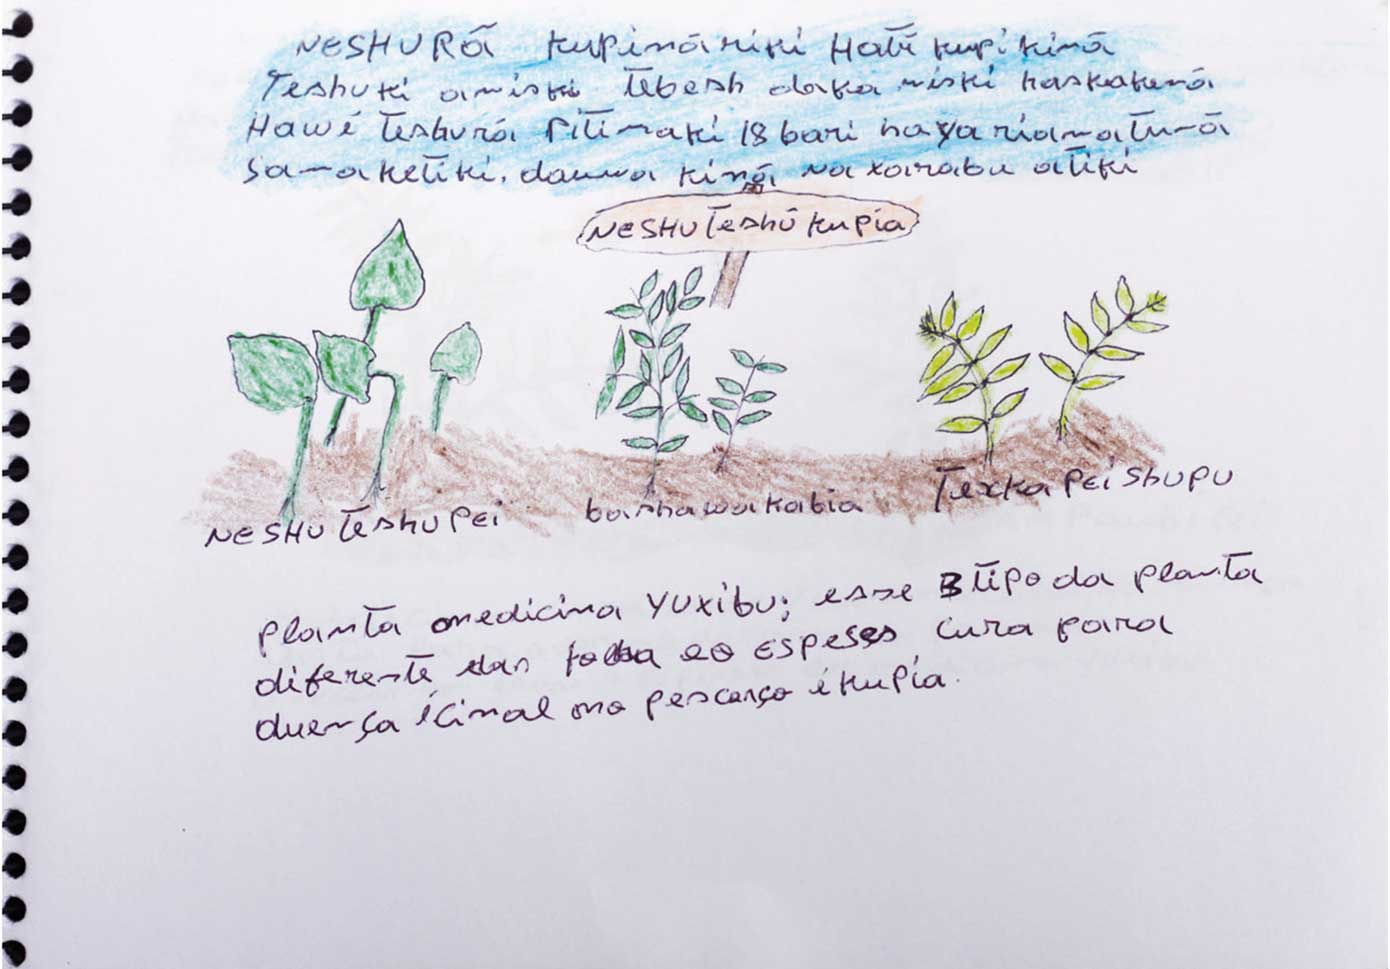 NESHURÃ kupinãriki Hatĩ kupikinã
Teshuki amiski tẽbesh daka miski haskakenã
Hawẽ teshurã Pitimaki 18 bari haya riamatunã
Samaketiki. dauwa kinã na xarabu atiki
NESHU Teshũ kupia
NESHU teshu Pei
bashawa kabia
Texka Pei Shupu
Planta medicina YUXIBU; esse 3 tipo da planta
diferente das folha eo ESPESES cura para
duença icinal no pescorço é kupia.